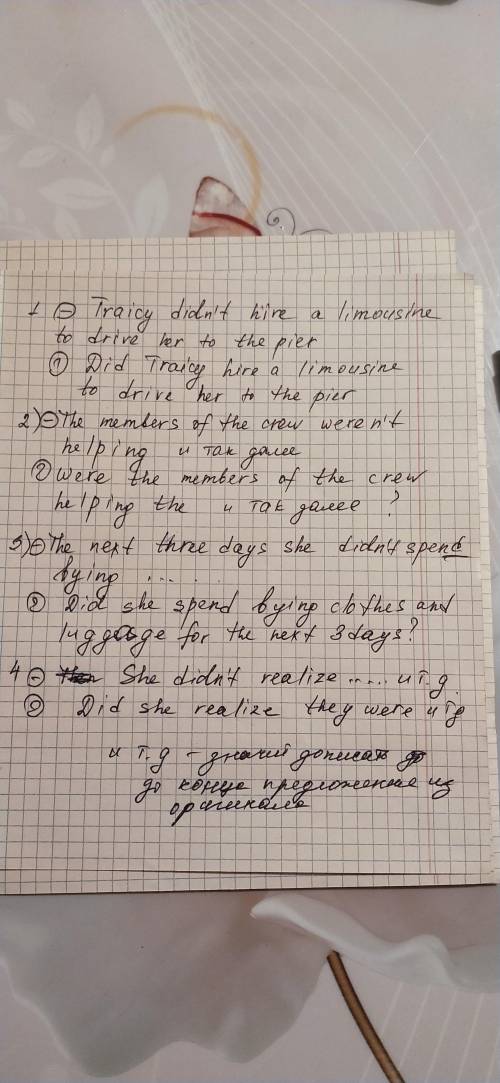 1 ⊖ Traicy didn't hire a limousine
to drive her to the pier
? Did Traicy hire a limousine
to drive her to the pier
2) ⊖ The members of the crew weren't
helping и так далее
? Were the members of the crew
helping the и так далее ?
3) ⊖ The next three days she didn't spend
bying .....
? Did she spend bying clothes and
luggage for the next 3 days?
4 ⊖ She didn't realize ..... и т.д.
? Did she realize they were и тд
и т.д - значит дописать до
до конца предложение из
оригинала